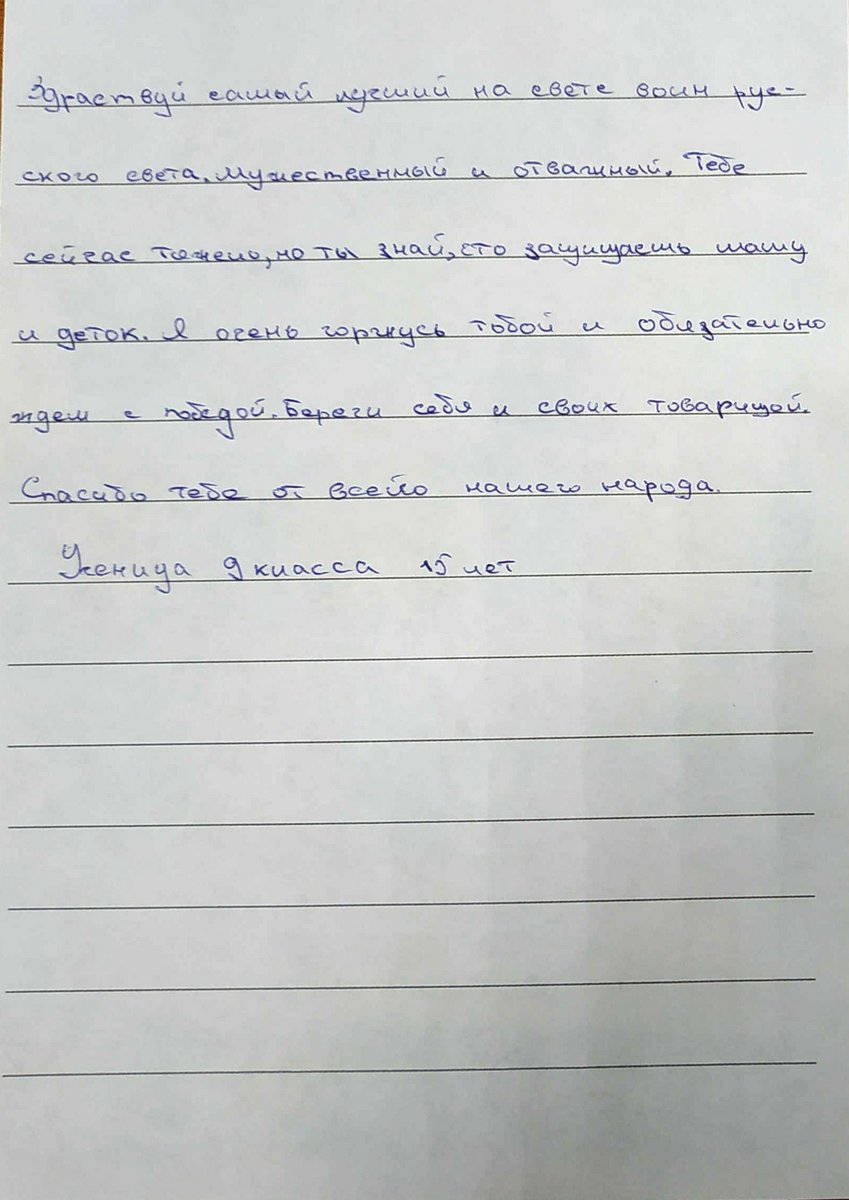 Здраствуй самый лучший на свете воин рус-
ского света. Мужественный и отважный. Тебе
сейчас тяжело, но ты знай, что защищаешь маму
и деток. Я очень горжусь тобой и обязательно
ждем с победой. Береги себя и своих товарищой.
Спасибо тебе от всейо нашего народа.
Ученица 9 класса 15 лет